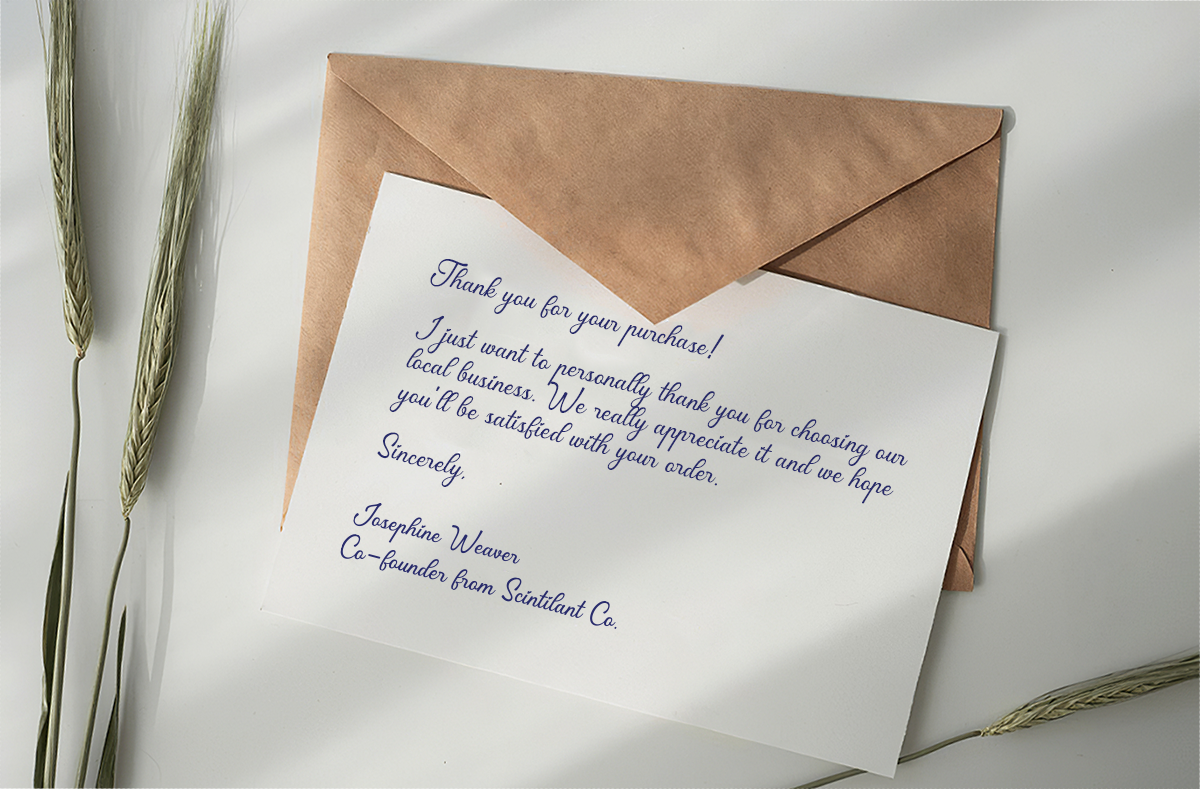 Thank you for your purchase!
I just want to personally thank you for choosing our
local business. We really appreciate it and we hope
you'll be satisfied with your order.
Sincerely,
Josephine Weaver
Co-founder from Scintilant Co.